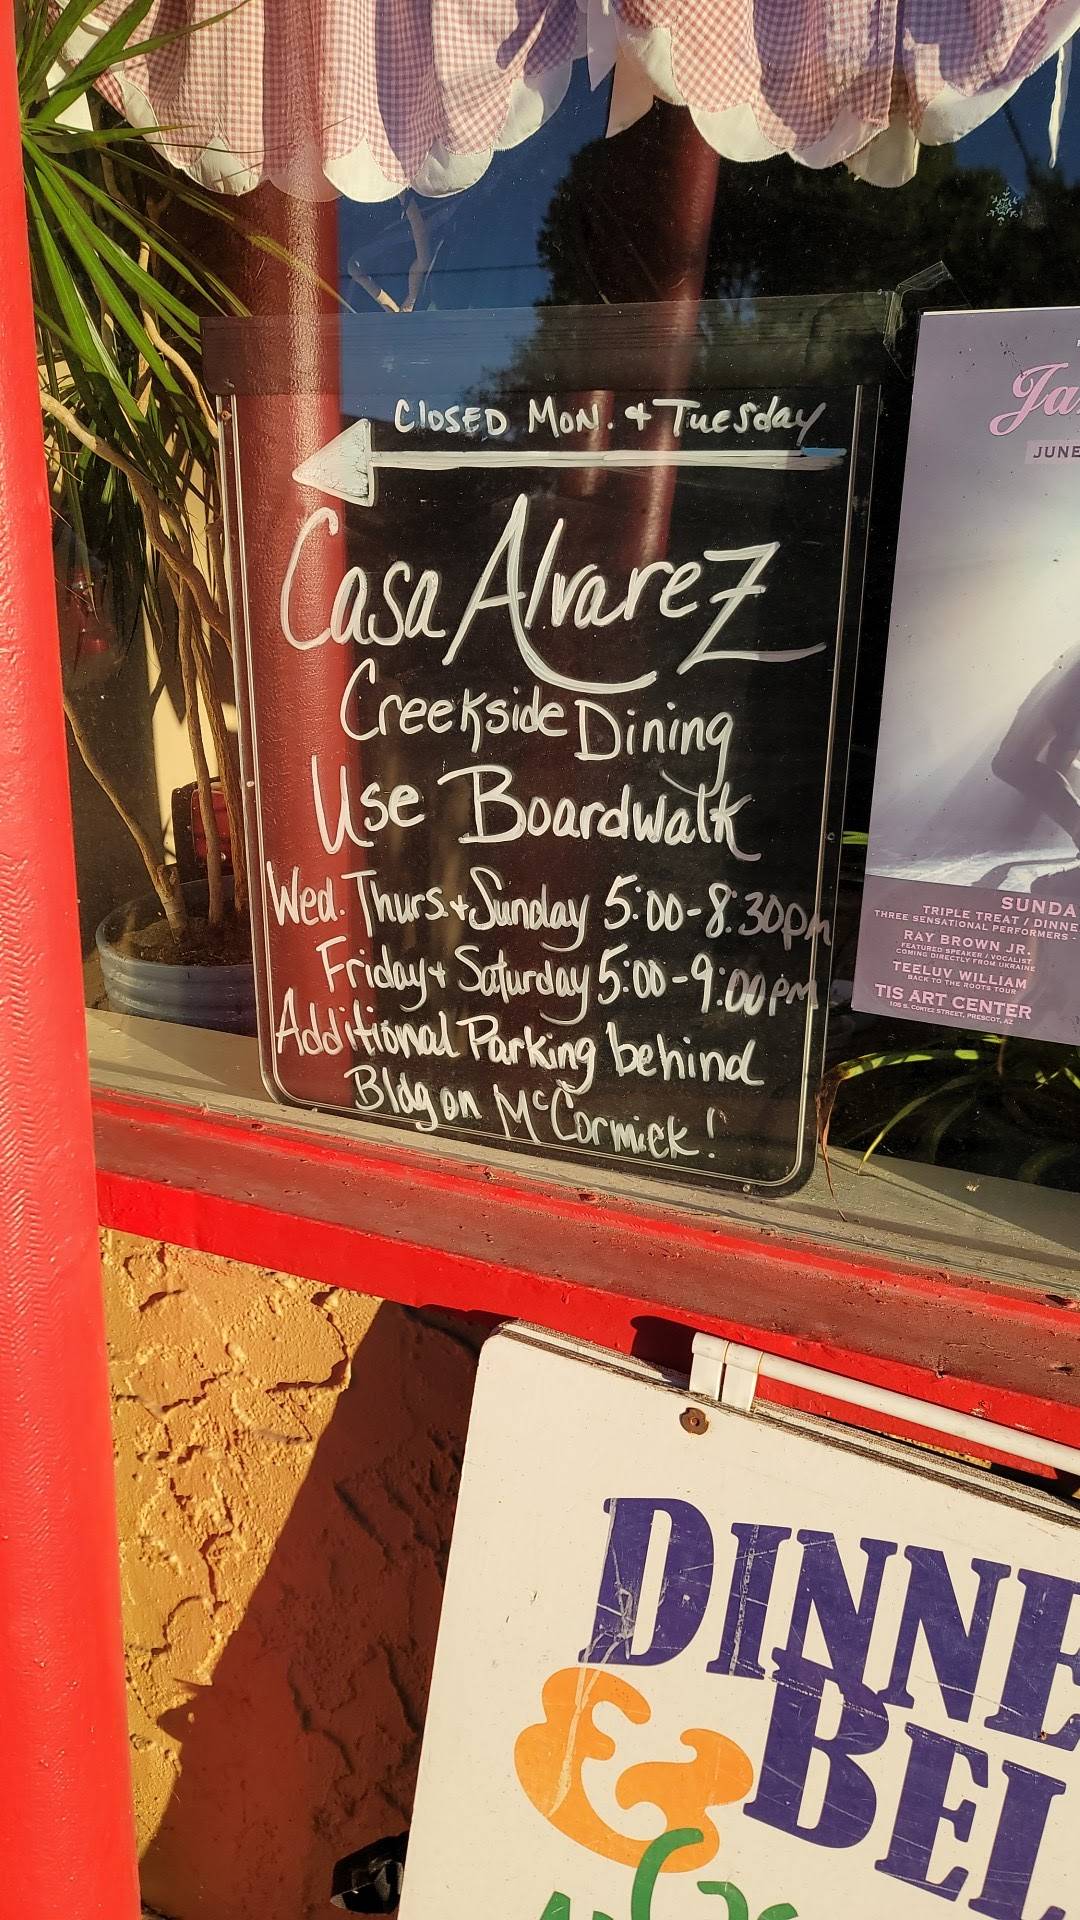 CLOSED MON. + Tuesday
Casa Alvarez
Creekside Dining
Use Boardwalk
Wed. Thurs. + Sunday 5:00-8:30pm
Friday + Saturday 5:00-9:00pm
Additional Parking behind
Bldg on McCormick!
JUNE
SUNDA
TRIPLE TREAT / DINNE
THREE SENSATIONAL PERFORMERS -
RAY BROWN JR.
FEATURED SPEAKER / VOCALIST
COMING DIRECTLY FROM UKRAINE
TEELUV WILLIAM
BACK TO THE ROOTS TOUR
TIS ART CENTER
105 S. CORTEZ STREET, PRESCOT, AZ
DINNE
& BEL